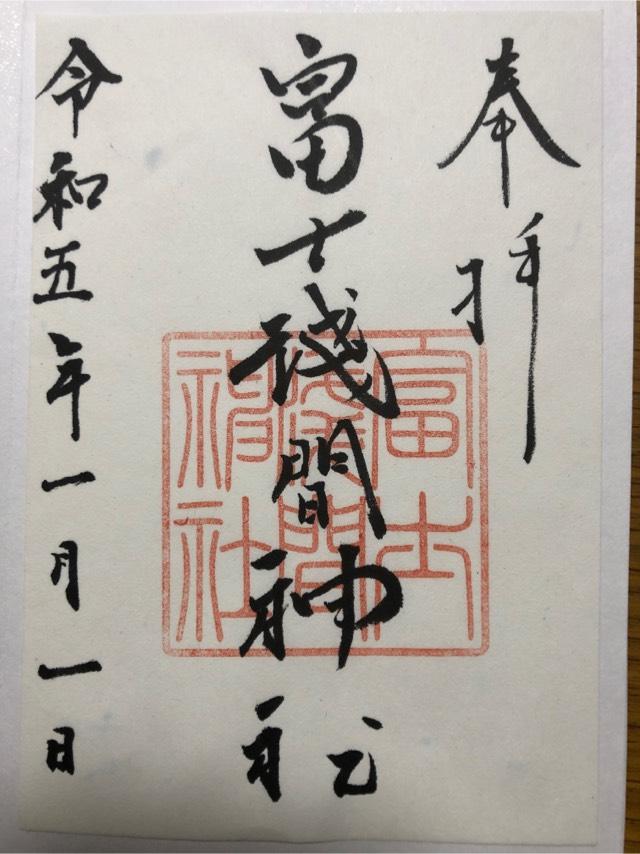 奉拝
富士浅間神社
令和五年一月一日
富士
浅間
神社